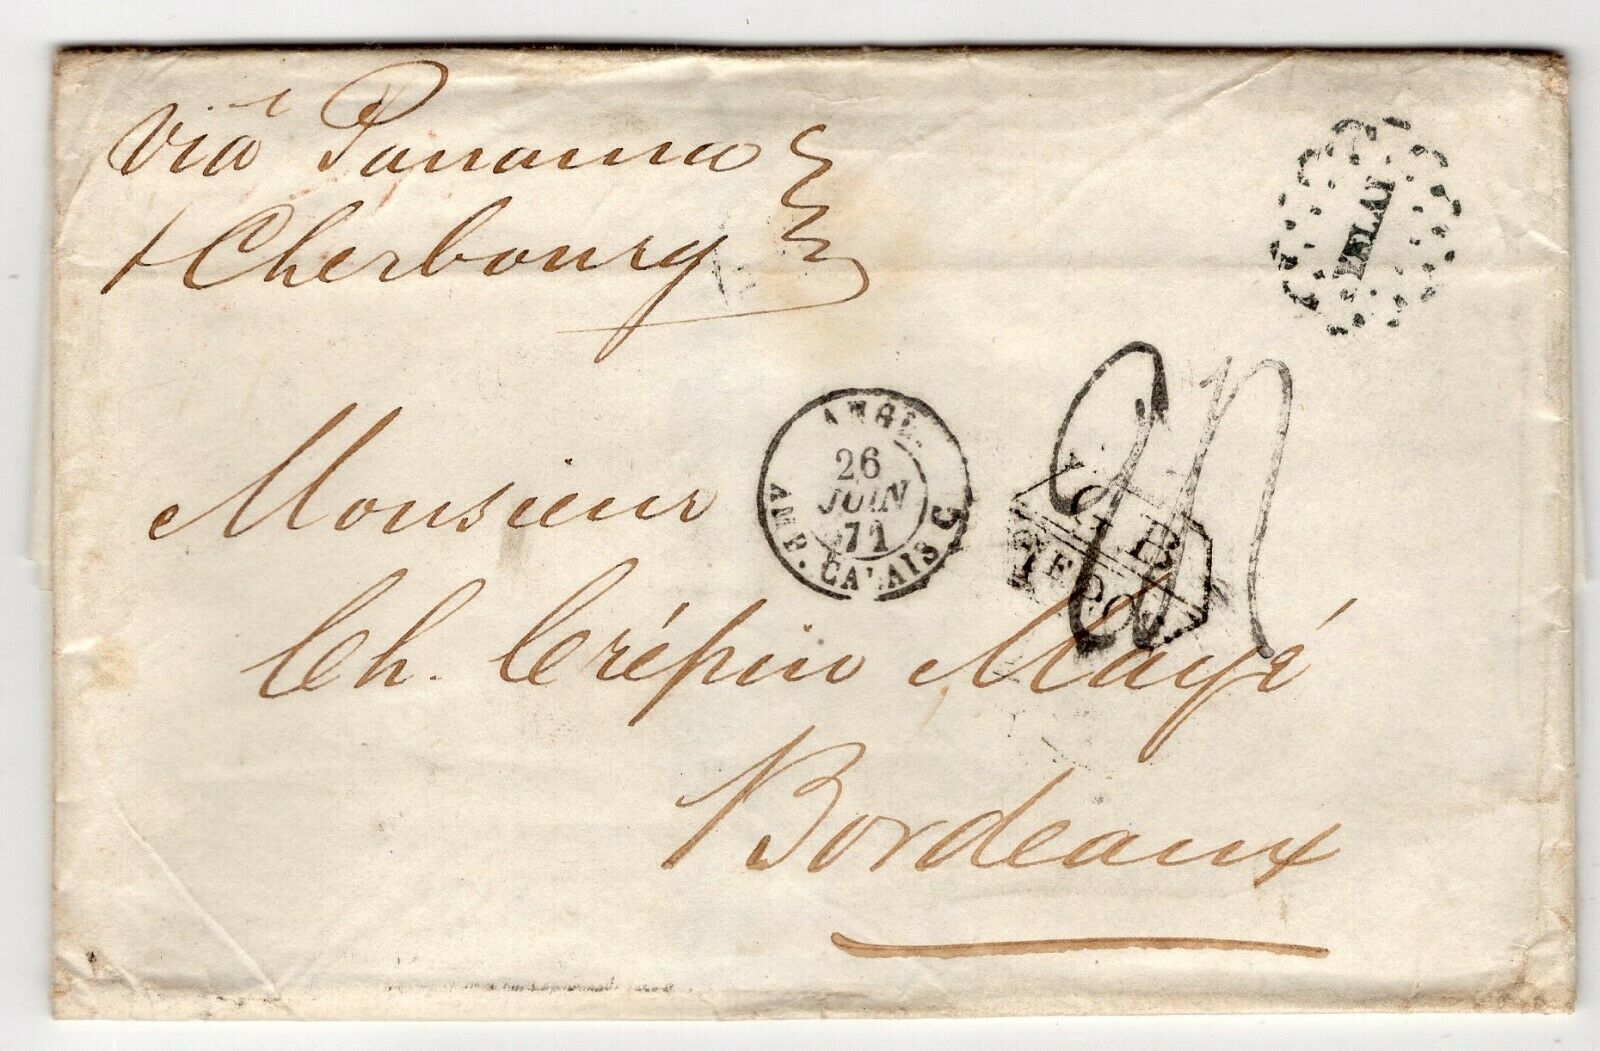 viâ Panama
+ Cherbourg
ANGL.
26
JUIN
71
AMB. CALAIS C
GB
1F
Monsieur
Ch. Crépin Mayé
Bordeaux